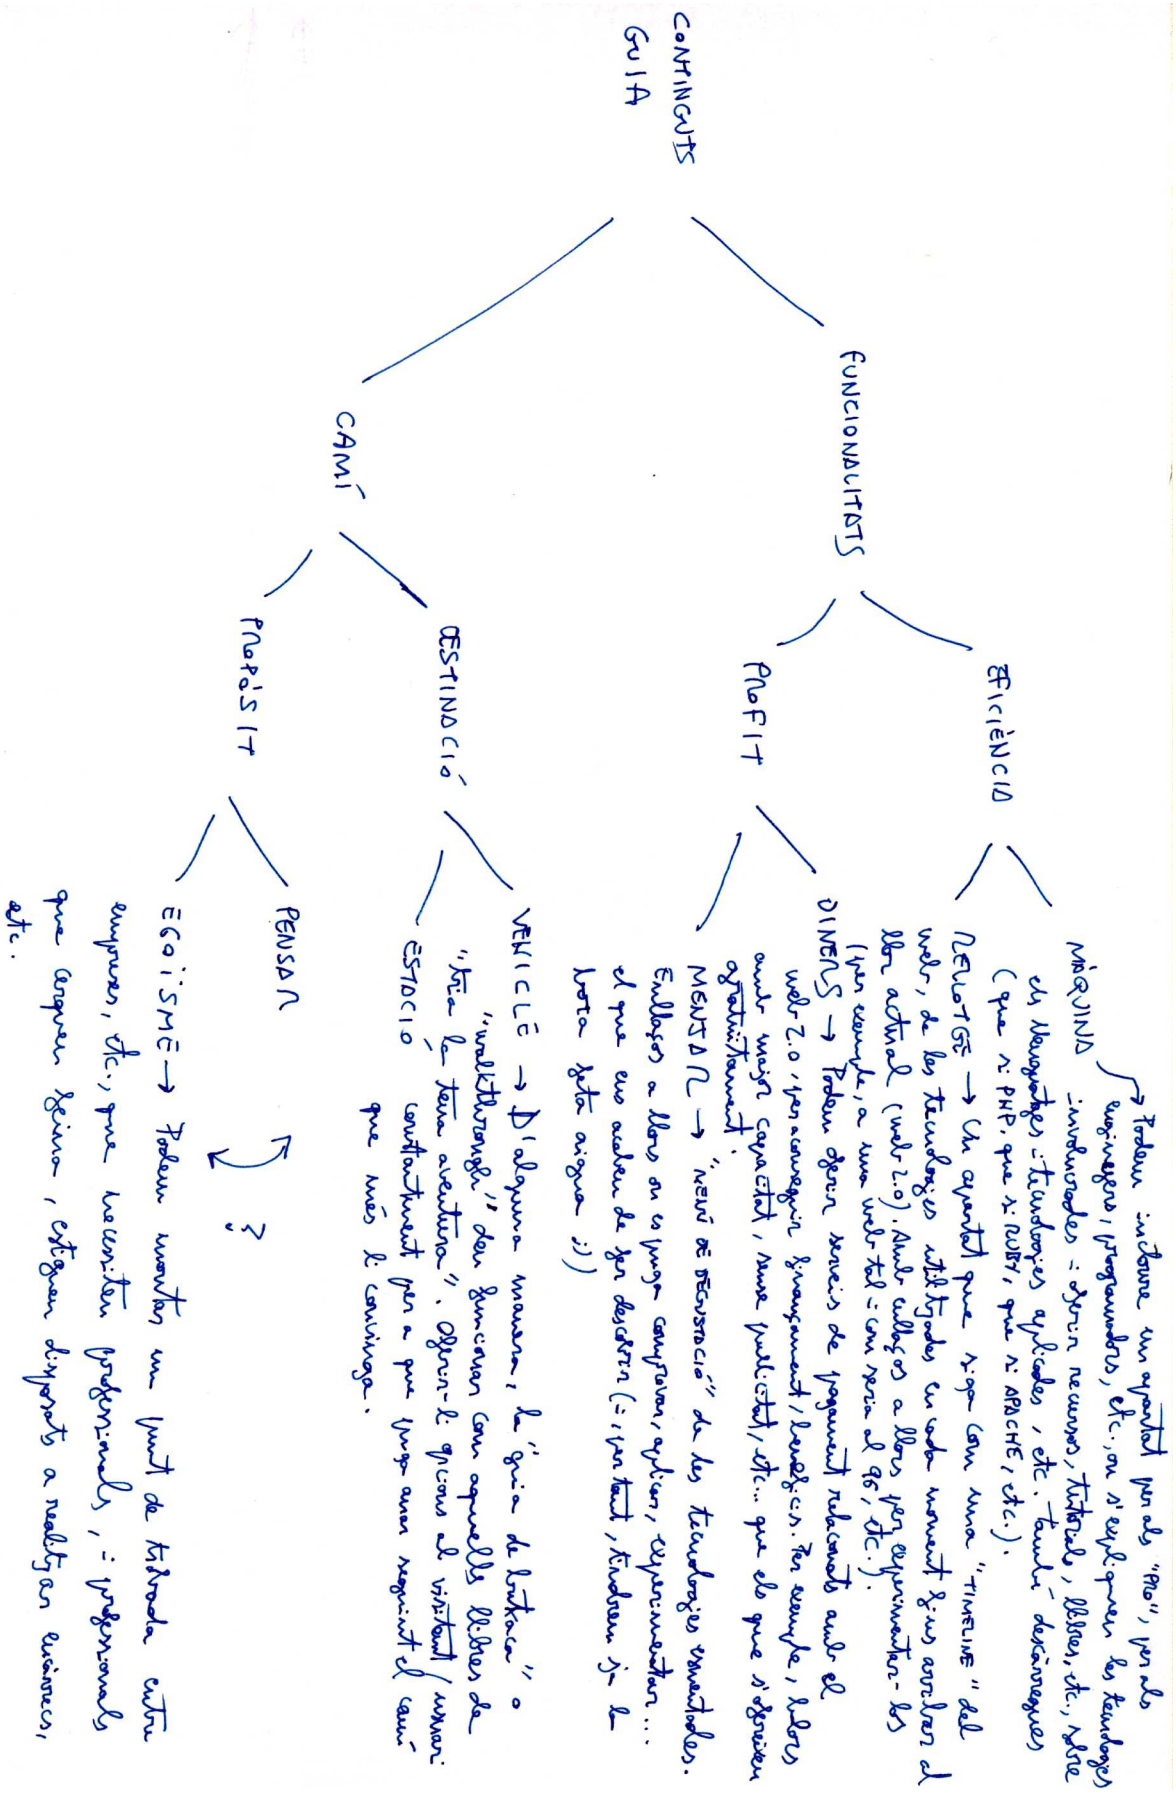 CONTINGUTS
GUIA
FUNCIONALITATS
EFICIÈNCIA
MÀQUINA → Podem incloure un apartat per als "PRO", per als
enginyers, programadors, etc., on s'expliquen les tecnologies
involucrades i oferir recursos, tutorials, llibres, etc., sobre
els llenguatges i tecnologies aplicades, etc. També descàrregues
(que si PHP, que si RUBY, que si APACHE, etc.).
RELLOTGE → Un apartat que siga com una "TIMELINE" del
web, de les tecnologies utilitzades en cada moment fins arribar al
lloc actual (web 2.0). Amb enllaços a llocs per experimentar-los
(per exemple, a una web tal i com seria al 96, etc.).
PROFIT
DINERS → Podem oferir serveis de pagament relacionats amb el
web 2.0, per aconseguir finançament, beneficis. Per exemple,
amb major capacitat, sense publicitat, etc... que els que s'ofereixen
gratuïtament.
MENJAR → "MENÚ DE DEGUSTACIÓ" de les tecnologies esmentades.
Enllaços a llocs on es puga comprovar, aplicar, experimentar...
el que ens acaben de fer descobrir (i, per tant, tindrem ja la
boca feta aigua ;))
CAMÍ
DESTINACIÓ
VEHICLE → D'alguna manera, la "guia de butaca" o
"walkthrough" deu funcionar com aquells llibres de
"tria la teua aventura". Oferir-li opcions al visitant/usuari
ESTACIÓ constantment per a que puga anar seguint el camí
que més li convinga.
PROPÒSIT
PENSAR
?
EGOISME → Podem muntar un punt de trobada entre
empreses, etc., que necessiten professionals, i professionals
que cerquen feina, estiguen disposats a realitzar encàrrecs,
etc.